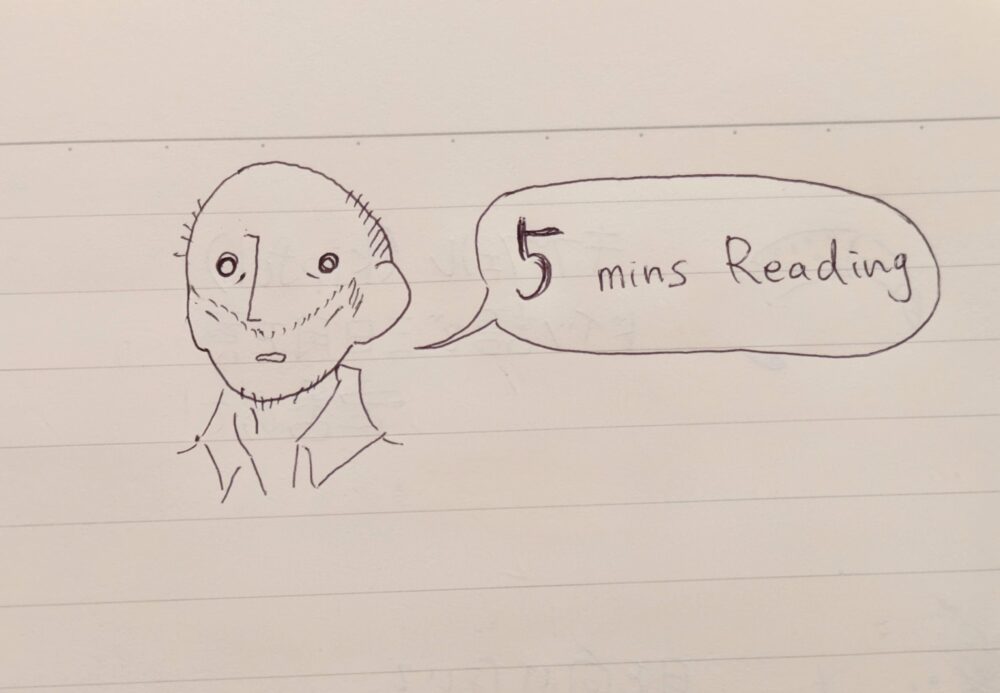 5 mins Reading